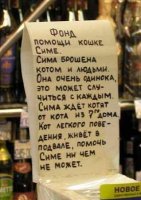 ФОНД
ПОМОЩИ КОШКЕ
СИМЕ.
СИМА БРОШЕНА
КОТОМ И ЛЮДЬМИ.
ОНА ОЧЕНЬ ОДИНОКА,
ЭТО МОЖЕТ СЛУ-
ЧИТЬСЯ С КАЖДЫМ.
СИМА ЖДЁТ КОТЯТ
ОТ КОТА ИЗ 7ГО ДОМА.
КОТ ЛЕГКОГО ПОВЕ-
ДЕНИЯ, ЖИВЁТ В
ПОДВАЛЕ, ПОМОЧЬ
СИМЕ НИ ЧЕМ
НЕ МОЖЕТ.
НОВОЕ